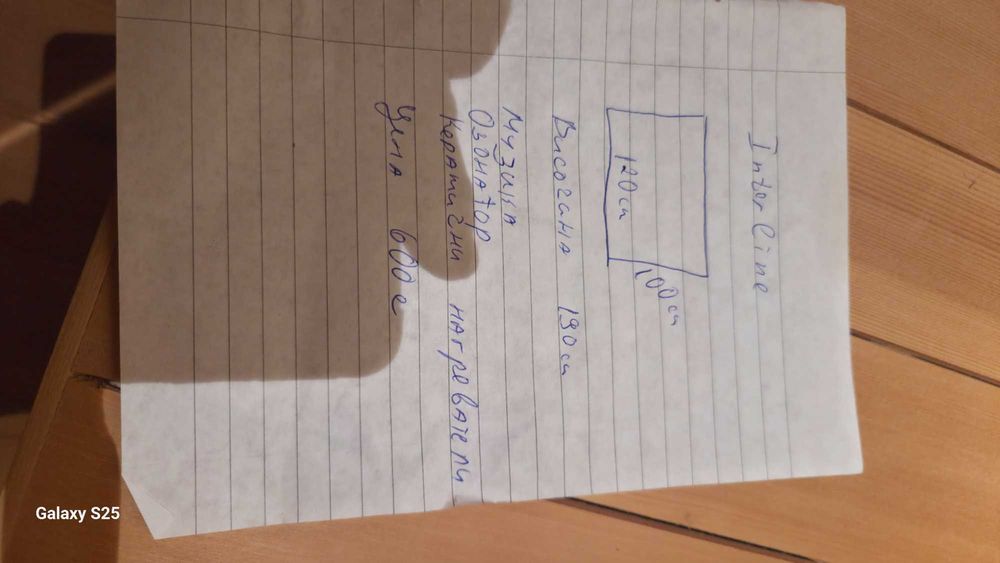 Interline
120 см
100 см
Височина 190 см
Музика
Озонатор
Керамични нагреватели
Цена 600 €
Galaxy S25